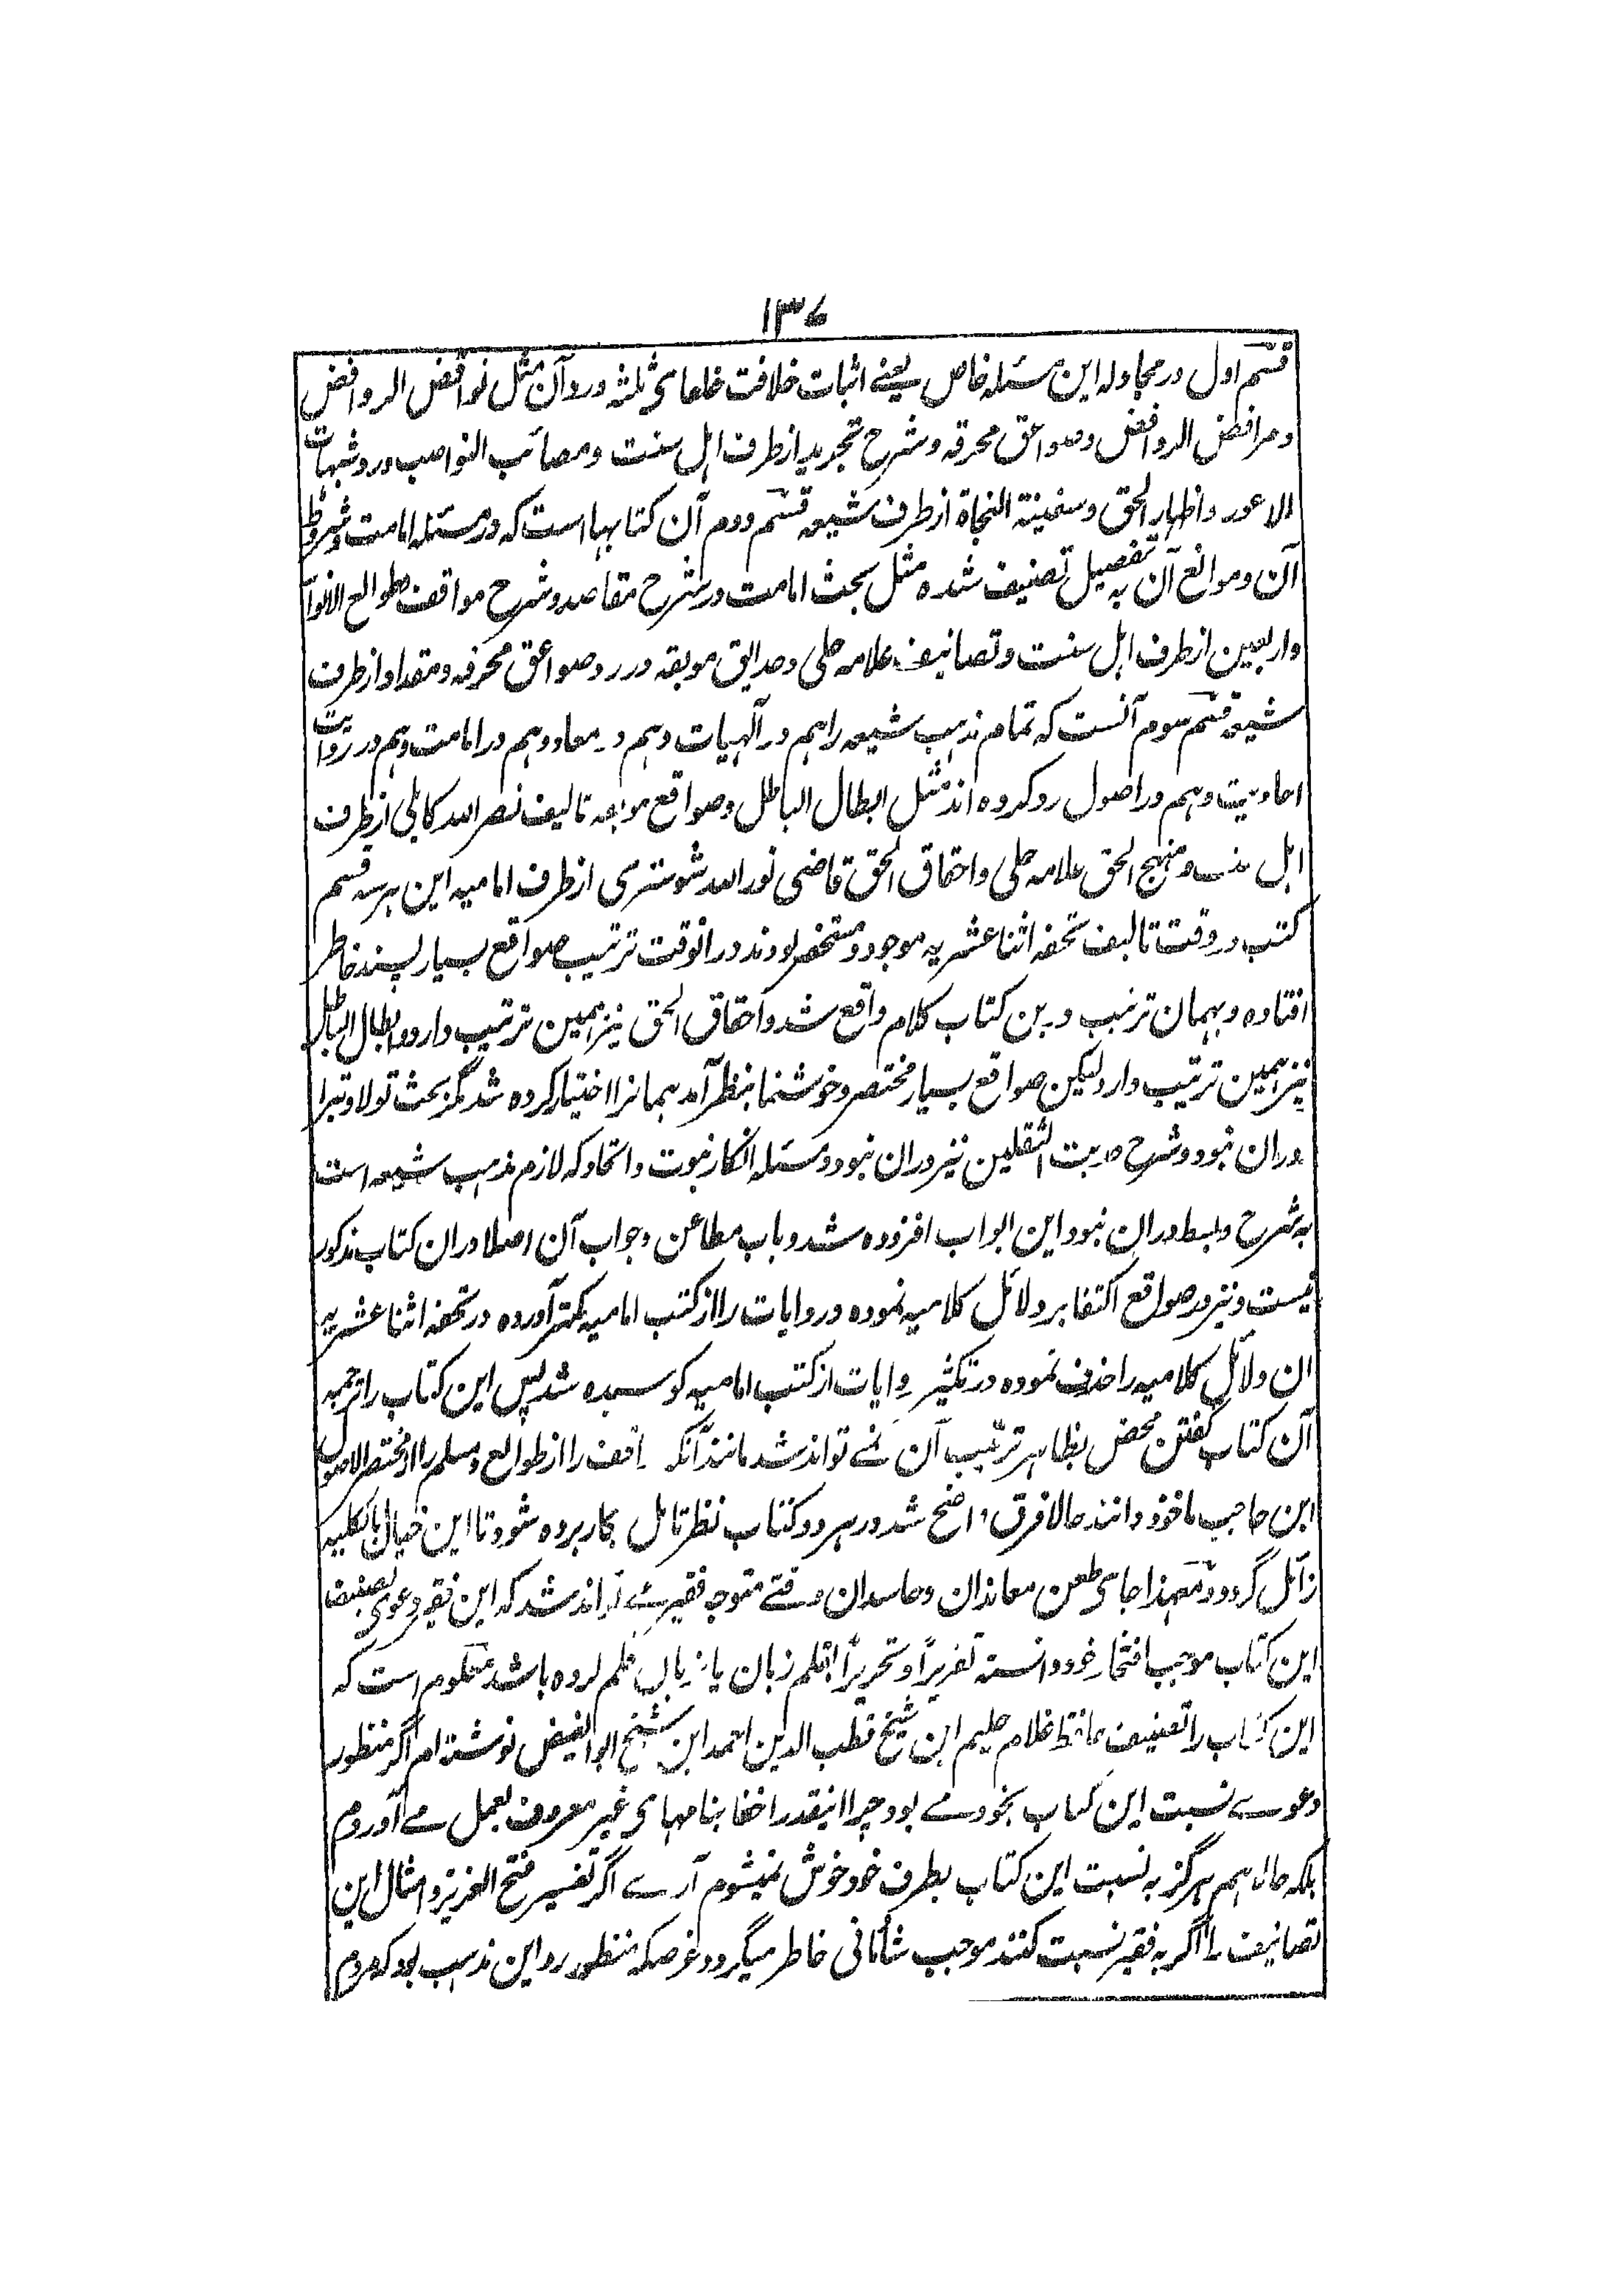 ۱۳۶
قسم اول در مجادله این مسئله خاص یعنے اثبات خلافت خلفای ثلثه و رد آن مثل نواقض الروافض
و مرافض الروافض و صواعق محرقه و شرح تجرید از طرف اہل سنت و مصائب النواصب و رد شبہات
الاعور و اظہار الحق و سفینة النجاة از طرف شیعہ قسم دوم آن کتابہا است کہ در مسئلہ امامت و شروط
آن و موانع آن بہ تفصیل تصنیف شدہ مثل بحث امامت در شرح مقاصد و شرح مواقف و طوالع الانوار
و اربعین از طرف اہل سنت و تصانیف علامہ حلی و حدایق موبقہ در رد صواعق محرقہ و مقداد از طرف
شیعہ قسم سوم آنست کہ تمام مذہب شیعہ را ہم در آلہیات و ہم در معاد و ہم در امامت و ہم در روایت
احادیث و ہم در اصول رد کردہ اند مثل ابطال الباطل و صواقع موبقہ تالیف نصر اللہ کابلی از طرف
اہل سنت و منہج الحق علامہ حلی و احقاق الحق قاضی نور اللہ شوستری از طرف امامیہ این ہر سہ قسم
کتب در وقت تالیف تحفہ اثنا عشریہ موجود و مستحضر بودند در انوقت ترتیب صواقع بسیار پسند خاطر
افتادہ و بہمان ترتیب درین کتاب کلام واقع شد و احقاق الحق نیز ہمین ترتیب دارد و ابطال الباطل
نیز ہمین ترتیب دارد لیکن صواقع بسیار مختصر و خوشنما بنظر آمد ہمانرا اختیار کردہ شد مگر بحث تولا و تبرا
دران نبود و شرح حدیث الثقلین نیز دران نبود و مسئلہ انکار نبوت و اتحاد کہ لازم مذہب شیعہ است
بہ شرح و بسط دران نبود این ابواب افزودہ شد و باب مطاعن و جواب آن اصلا دران کتاب مذکور
نیست و نیز در صواقع اکتفا بر دلائل کلامیہ نمودہ و روایات را از کتب امامیہ کمتر آوردہ در تحفہ اثنا عشریہ
ان دلائل کلامیہ را حذف نمودہ در تکثیر روایات از کتب امامیہ کوشیدہ شد پس این کتاب را ترجمہ
آن کتاب گفتن محض بظاہر ترتیب آن نمے تواند شد مانند آنکہ مواقف را از طوالع و مسلم را از مختصر الاصول
ابن حاجب ماخوذ دانند حالا فرق واضح شد در ہر دو کتاب نظر تامل بکار بردہ شود تا این خیال بالکلیہ
زائل گردد و معہذا جای طعن معاندان و حاسدان وقتے متوجہ فقیر مے تواند شد کہ این فقیر دعوی تصنیف
این کتاب موجب افتخار خود دانستہ تقریراً و تحریراً بقلم زبان یا زبان قلم کردہ باشد معلوم است کہ
این کتاب را تصنیف حافظ غلام حلیم ابن شیخ قطب الدین احمد ابن شیخ ابو الفیض نوشتہ ام اگر منظور
دعوے نسبت این کتاب بخود مے بود چرا اینقدر اخفا بنامہای غیر معروف بعمل مے آوردم
بلکہ حالا ہم ہرگز بہ نسبت این کتاب بطرف خود خوش نمیشوم آرے اگر تفسیر فتح العزیز و امثال این
تصانیف را اگر بہ فقیر نسبت کنند موجب شادمانی خاطر میگردد غرضکہ منظور رد این مذہب بود کہ مردم